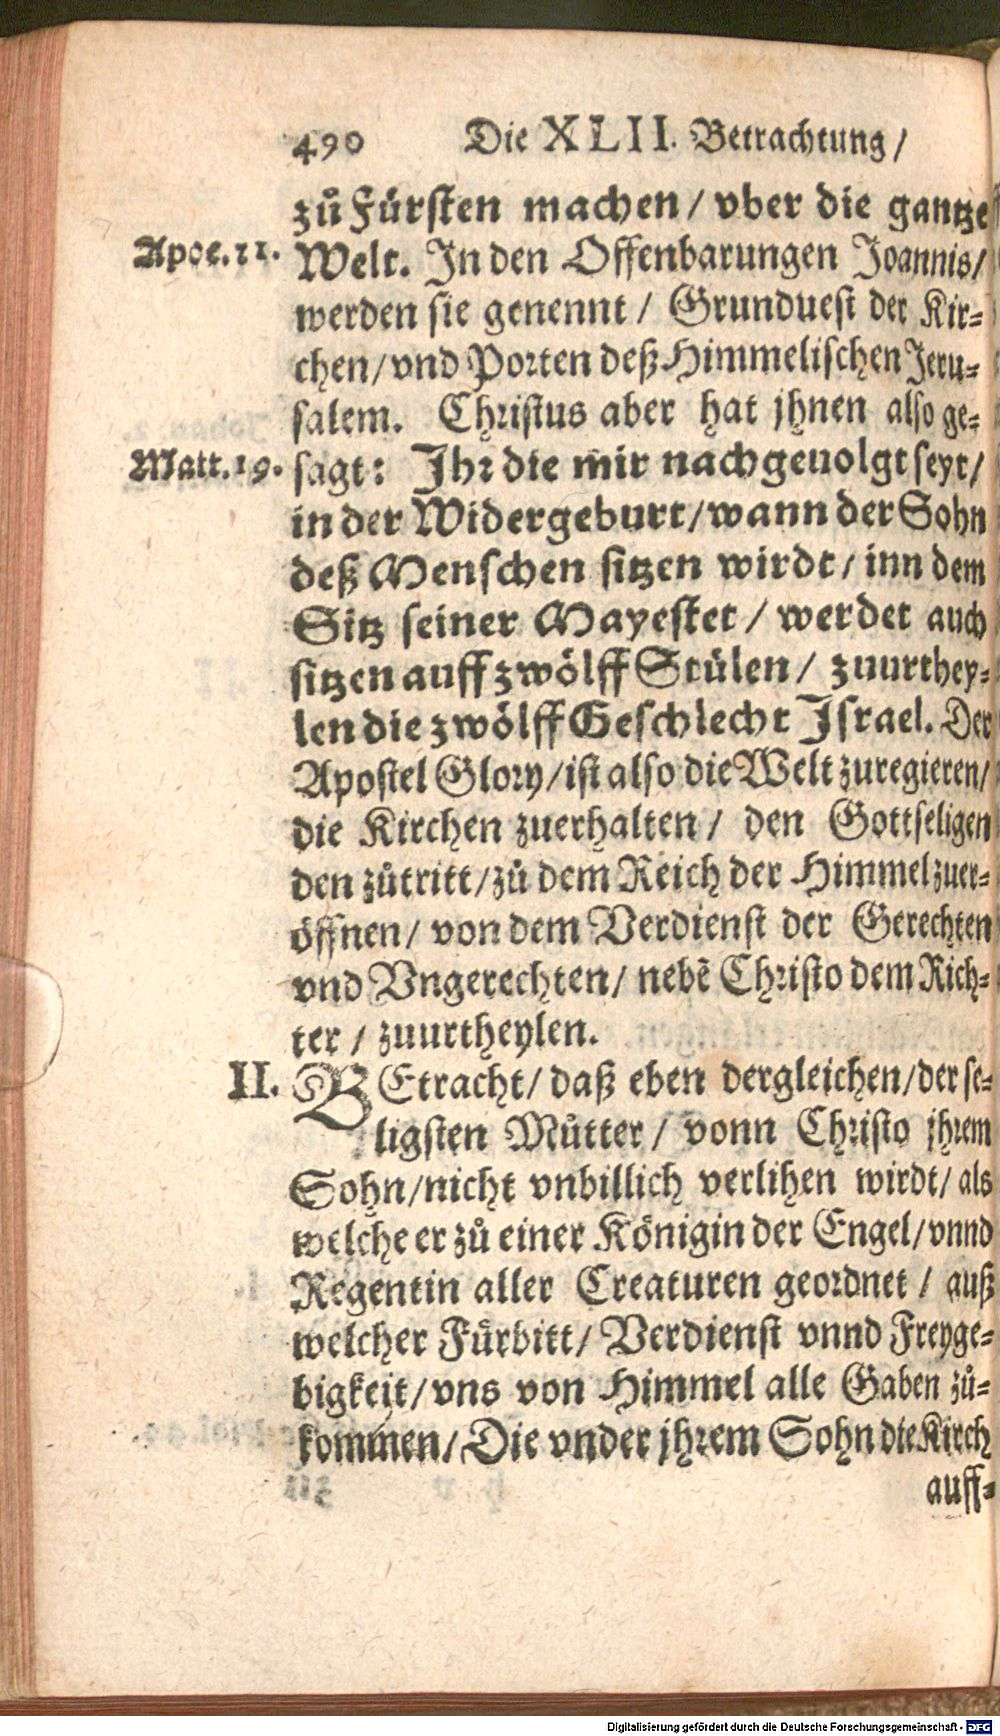 490 Die XLII. Betrachtung /
zů Fürsten machen / vber die gantze
Apoc. 21. Welt. In den Offenbarungen Joannis/
werden sie genennt / Grunduest der Kir-
chen/ vnd Porten deß Himmelischen Jeru-
salem. Christus aber hat jhnen also ge-
Matt. 19. sagt: Ihr die mir nachgeuolgt seyt/
in der Widergeburt/ wann der Sohn
deß Menschen sitzen wirdt / inn dem
Sitz seiner Mayestet / werdet auch
sitzen auff zwölff Stülen / zuurthey-
len die zwölff Geschlecht Israel. Der
Apostel Glory/ ist also die Welt zuregieren/
die Kirchen zuerhalten / den Gottseligen
den zůtritt/ zů dem Reich der Himmel zuer-
öffnen/ von dem Verdienst der Gerechten
vnd Vngerechten/ nebẽ Christo dem Rich-
ter / zuurtheylen.
II. BEtracht/ daß eben dergleichen/ der se-
ligsten Můtter / vonn Christo jhrem
Sohn/ nicht vnbillich verlihen wirdt/ als
welche er zů einer Königin der Engel/ vnnd
Regentin aller Creaturen geordnet / auß
welcher Fürbitt/ Verdienst vnnd Freyge-
bigkeit/ vns von Himmel alle Gaben zů-
kommen/ Die vnder jhrem Sohn die Kirch
auff-
Digitalisierung gefördert durch die Deutsche Forschungsgemeinschaft - DFG